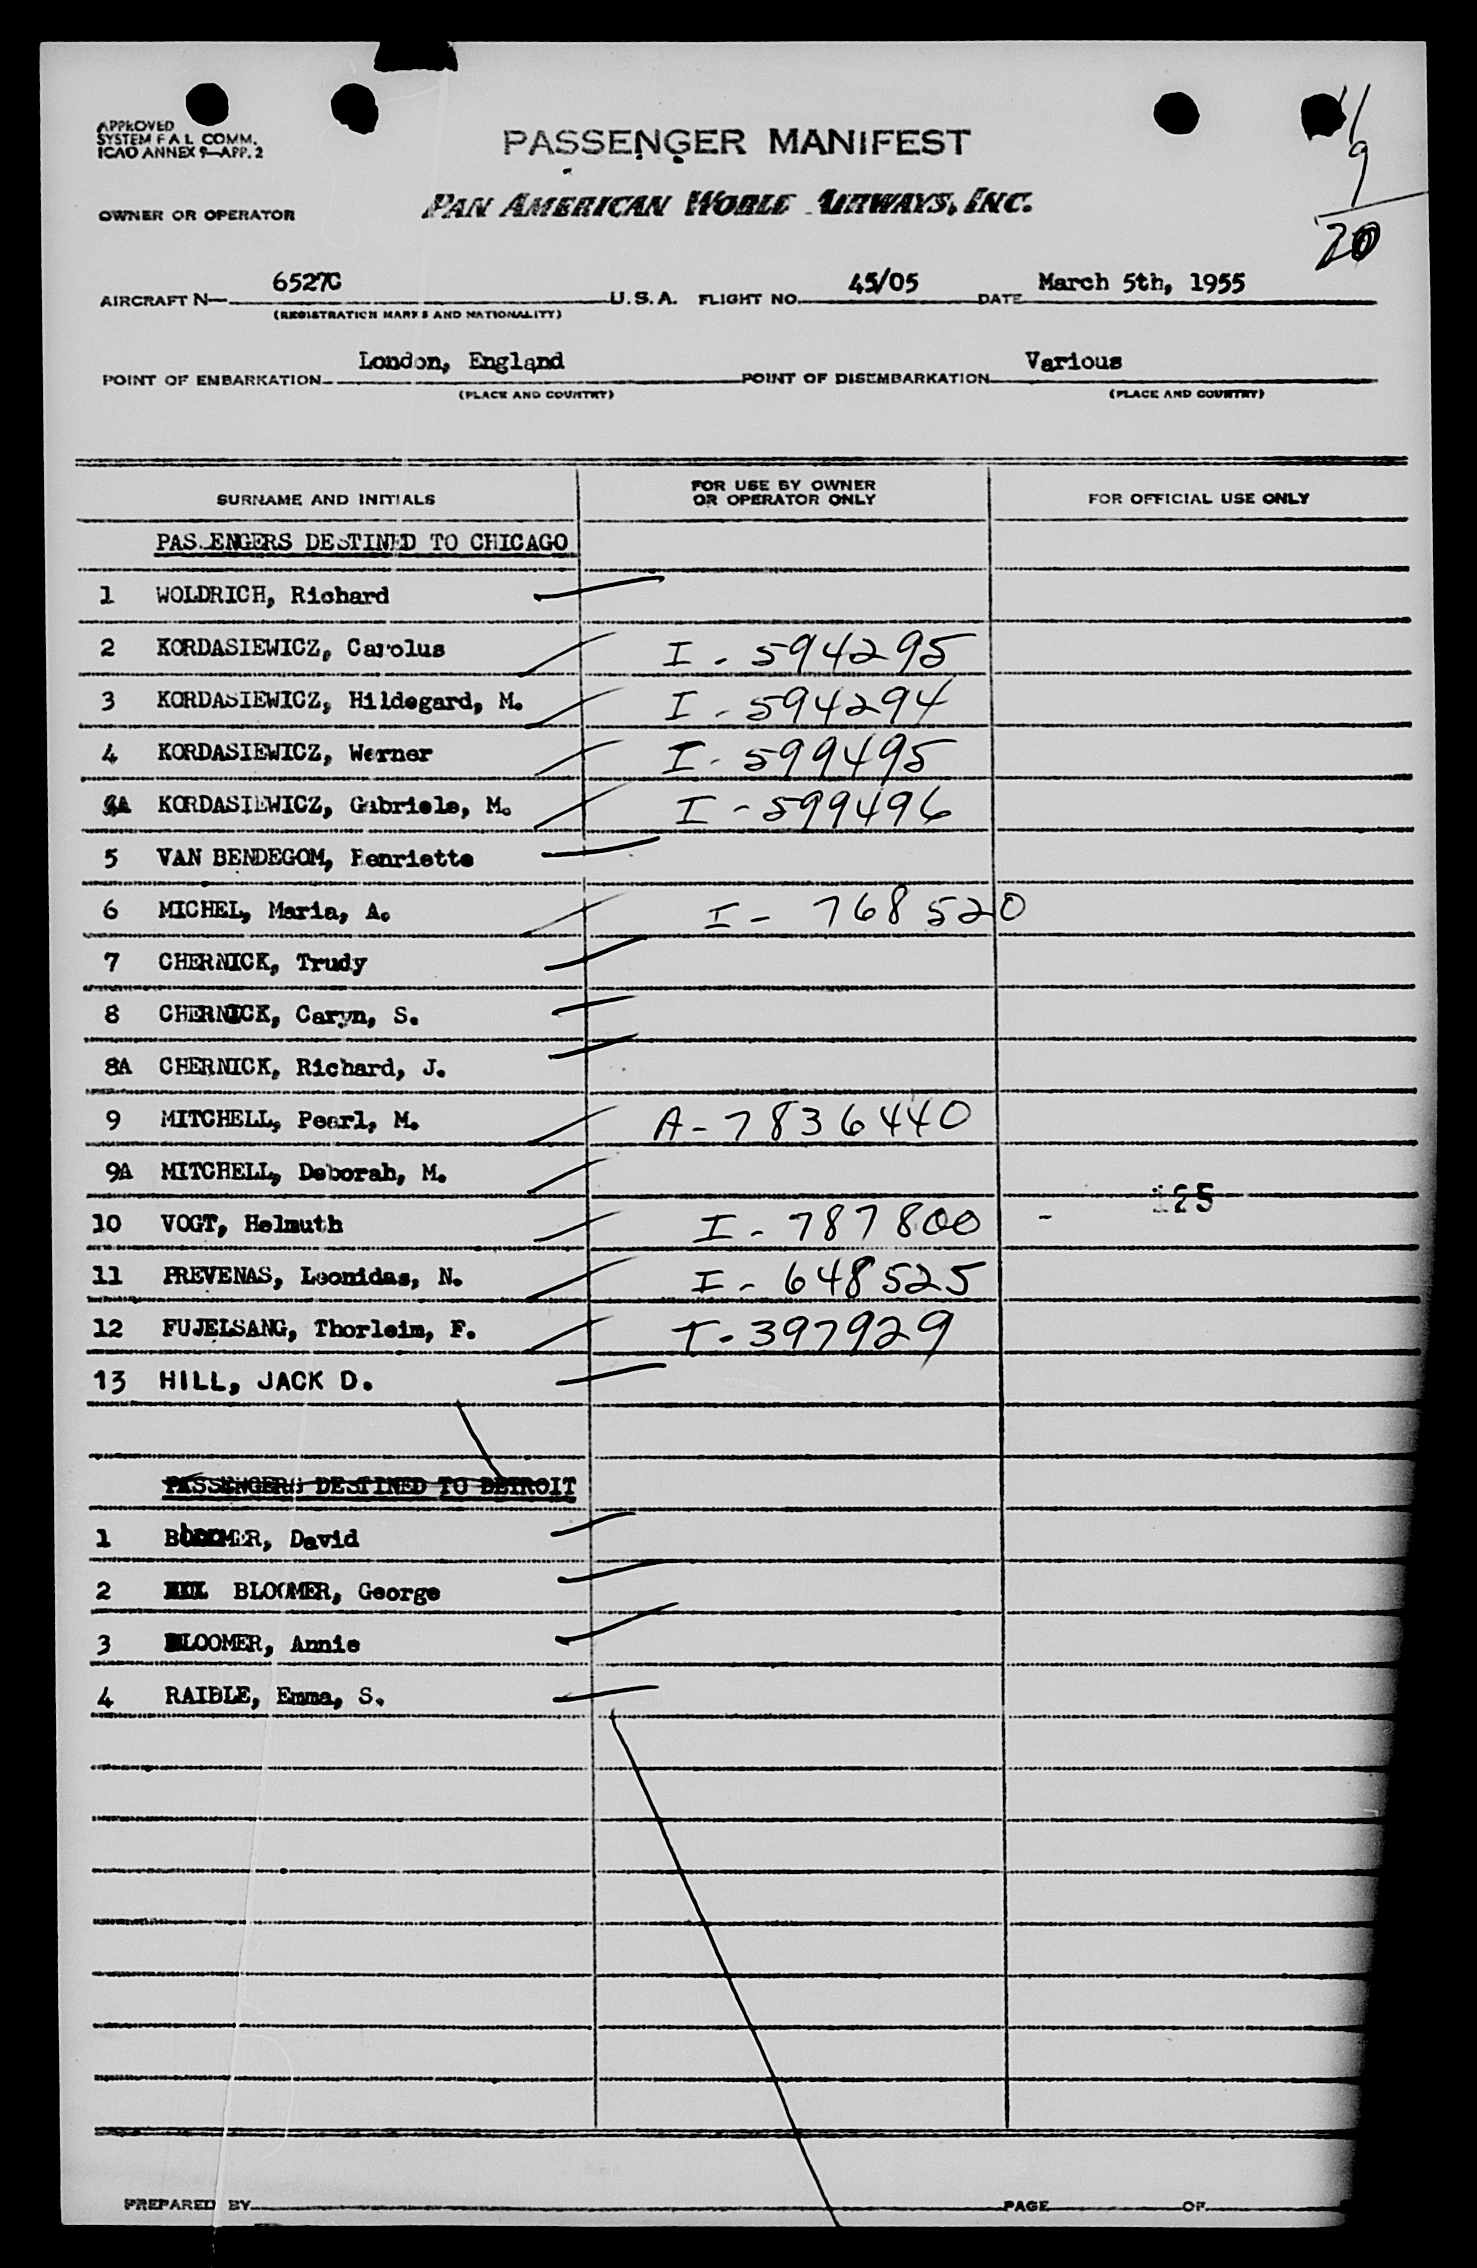 APPROVED
SYSTEM F A L COMM.
ICAO ANNEX 9—APP. 2
PASSENGER MANIFEST
11
9
20
OWNER OR OPERATOR
PAN AMERICAN WORLD AIRWAYS, INC.
AIRCRAFT N— 6527C U.S.A. FLIGHT NO. 45/05 DATE March 5th, 1955
(REGISTRATION MARKS AND NATIONALITY)
POINT OF EMBARKATION London, England POINT OF DISEMBARKATION Various
(PLACE AND COUNTRY) (PLACE AND COUNTRY)
SURNAME AND INITIALS FOR USE BY OWNER OR OPERATOR ONLY FOR OFFICIAL USE ONLY
PASSENGERS DESTINED TO CHICAGO
1 WOLDRICH, Richard
2 KORDASIEWICZ, Carolus I - 594295
3 KORDASIEWICZ, Hildegard, M. I - 594294
4 KORDASIEWICZ, Werner I - 599495
4A KORDASIEWICZ, Gabriele, M. I - 599496
5 VAN BENDEGOM, Henriette
6 MICHEL, Maria, A. I - 768520
7 CHERNICK, Trudy
8 CHERNICK, Caryn, S.
8A CHERNICK, Richard, J.
9 MITCHELL, Pearl, M. A - 7836440
9A MITCHELL, Deborah, M.
125
10 VOGT, Helmuth I - 787800 -
11 PREVENAS, Leonidas, N. I - 648525
12 FUJELSANG, Thorleim, F. T - 397929
13 HILL, JACK D.
PASSENGERS DESTINED TO DETROIT
1 BLOOMER, David
2 BLOOMER, George
3 BLOOMER, Annie
4 RAIBLE, Emma, S.
PREPARED BY PAGE OF